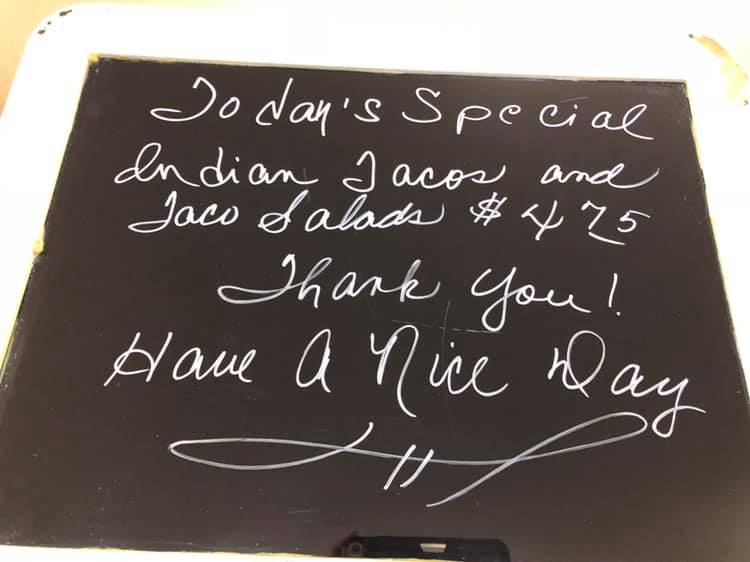 Today's Special
Indian Tacos and
Taco Salads $ 4 75
Thank You!
Have A Nice Day